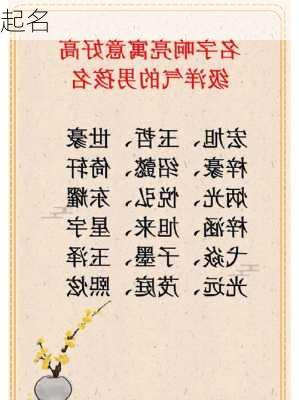 起名
名字响亮寓意好高
级洋气的男孩名
宏旭、玉哲、世豪
梓豪、绍懿、倚轩
炳光、悦弘、东耀
梓涵、旭来、星宇
弋焱、子墨、玉泽
光远、茂庭、熙炫